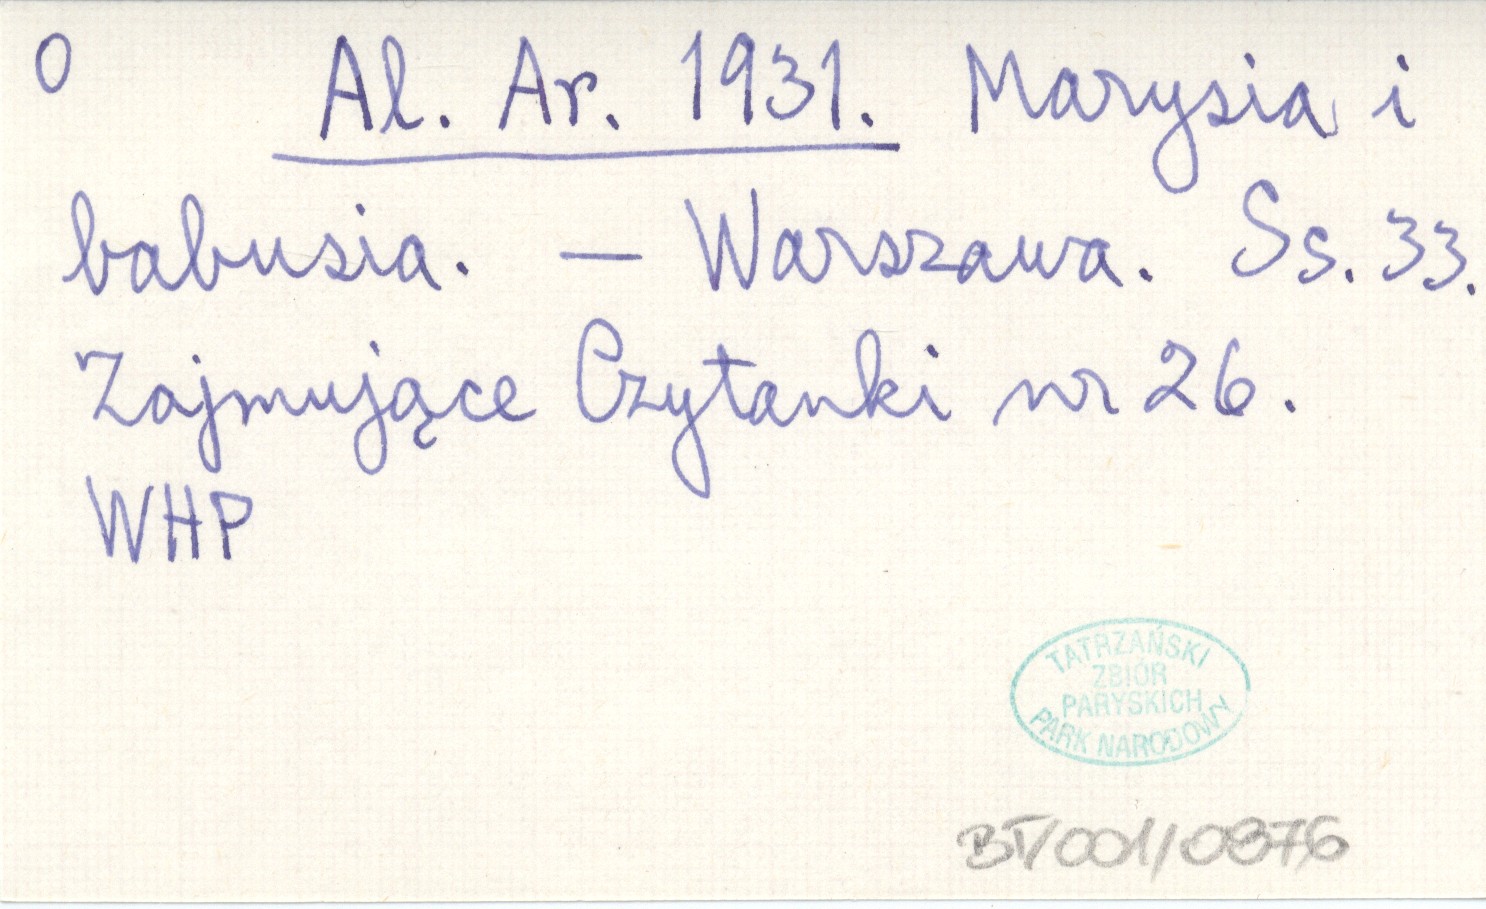 O Al. Ar. 1931. Marysia i
babusia. — Warszawa. Ss. 33.
Zajmujące Czytanki nr 26.
WHP
TATRZAŃSKI
ZBIÓR
PARYSKICH
PARK NARODOWY
BT/001/0876